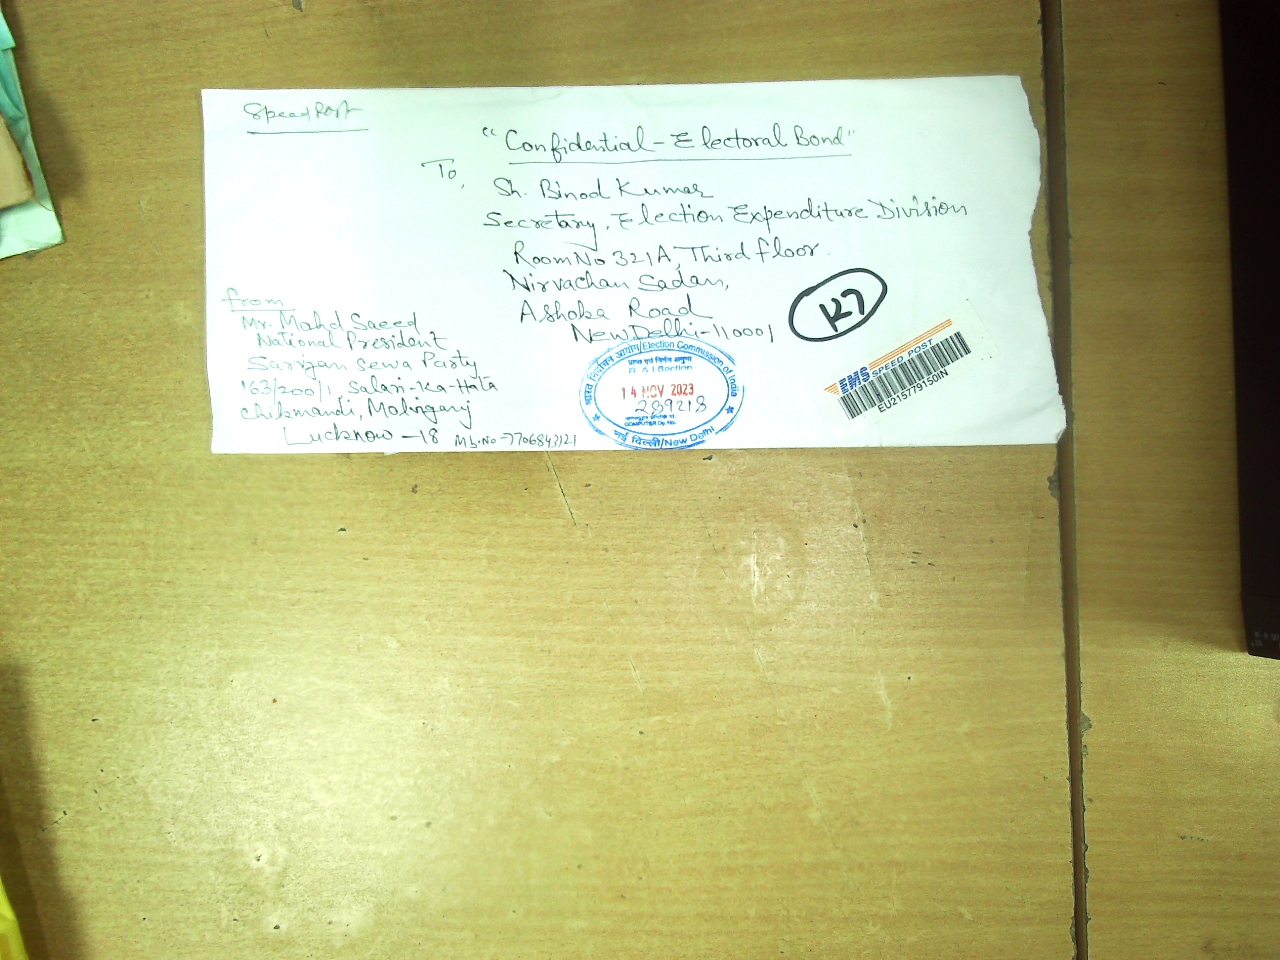 Speed Post
"Confidential - Electoral Bond"
To,
Sh. Binod Kumar
Secretary, Election Expenditure Division
Room No 321A, Third floor.
Nirvachan Sadan,
Ashoka Road
New Delhi-110001
K7
from
Mr. Mohd Saeed
National President
Sarvjan Sewa Party
163/200/1, Salari-Ka-Hata
Chikmandi, Molviganj
Lucknow - 18 Mb.No - 7706843121
भारत निर्वाचन आयोग/Election Commission of India
R & I Section
14 NOV 2023
289218
COMPUTER Dy. No.
नई दिल्ली/New Delhi
EMS SPEED POST
EU215779150IN